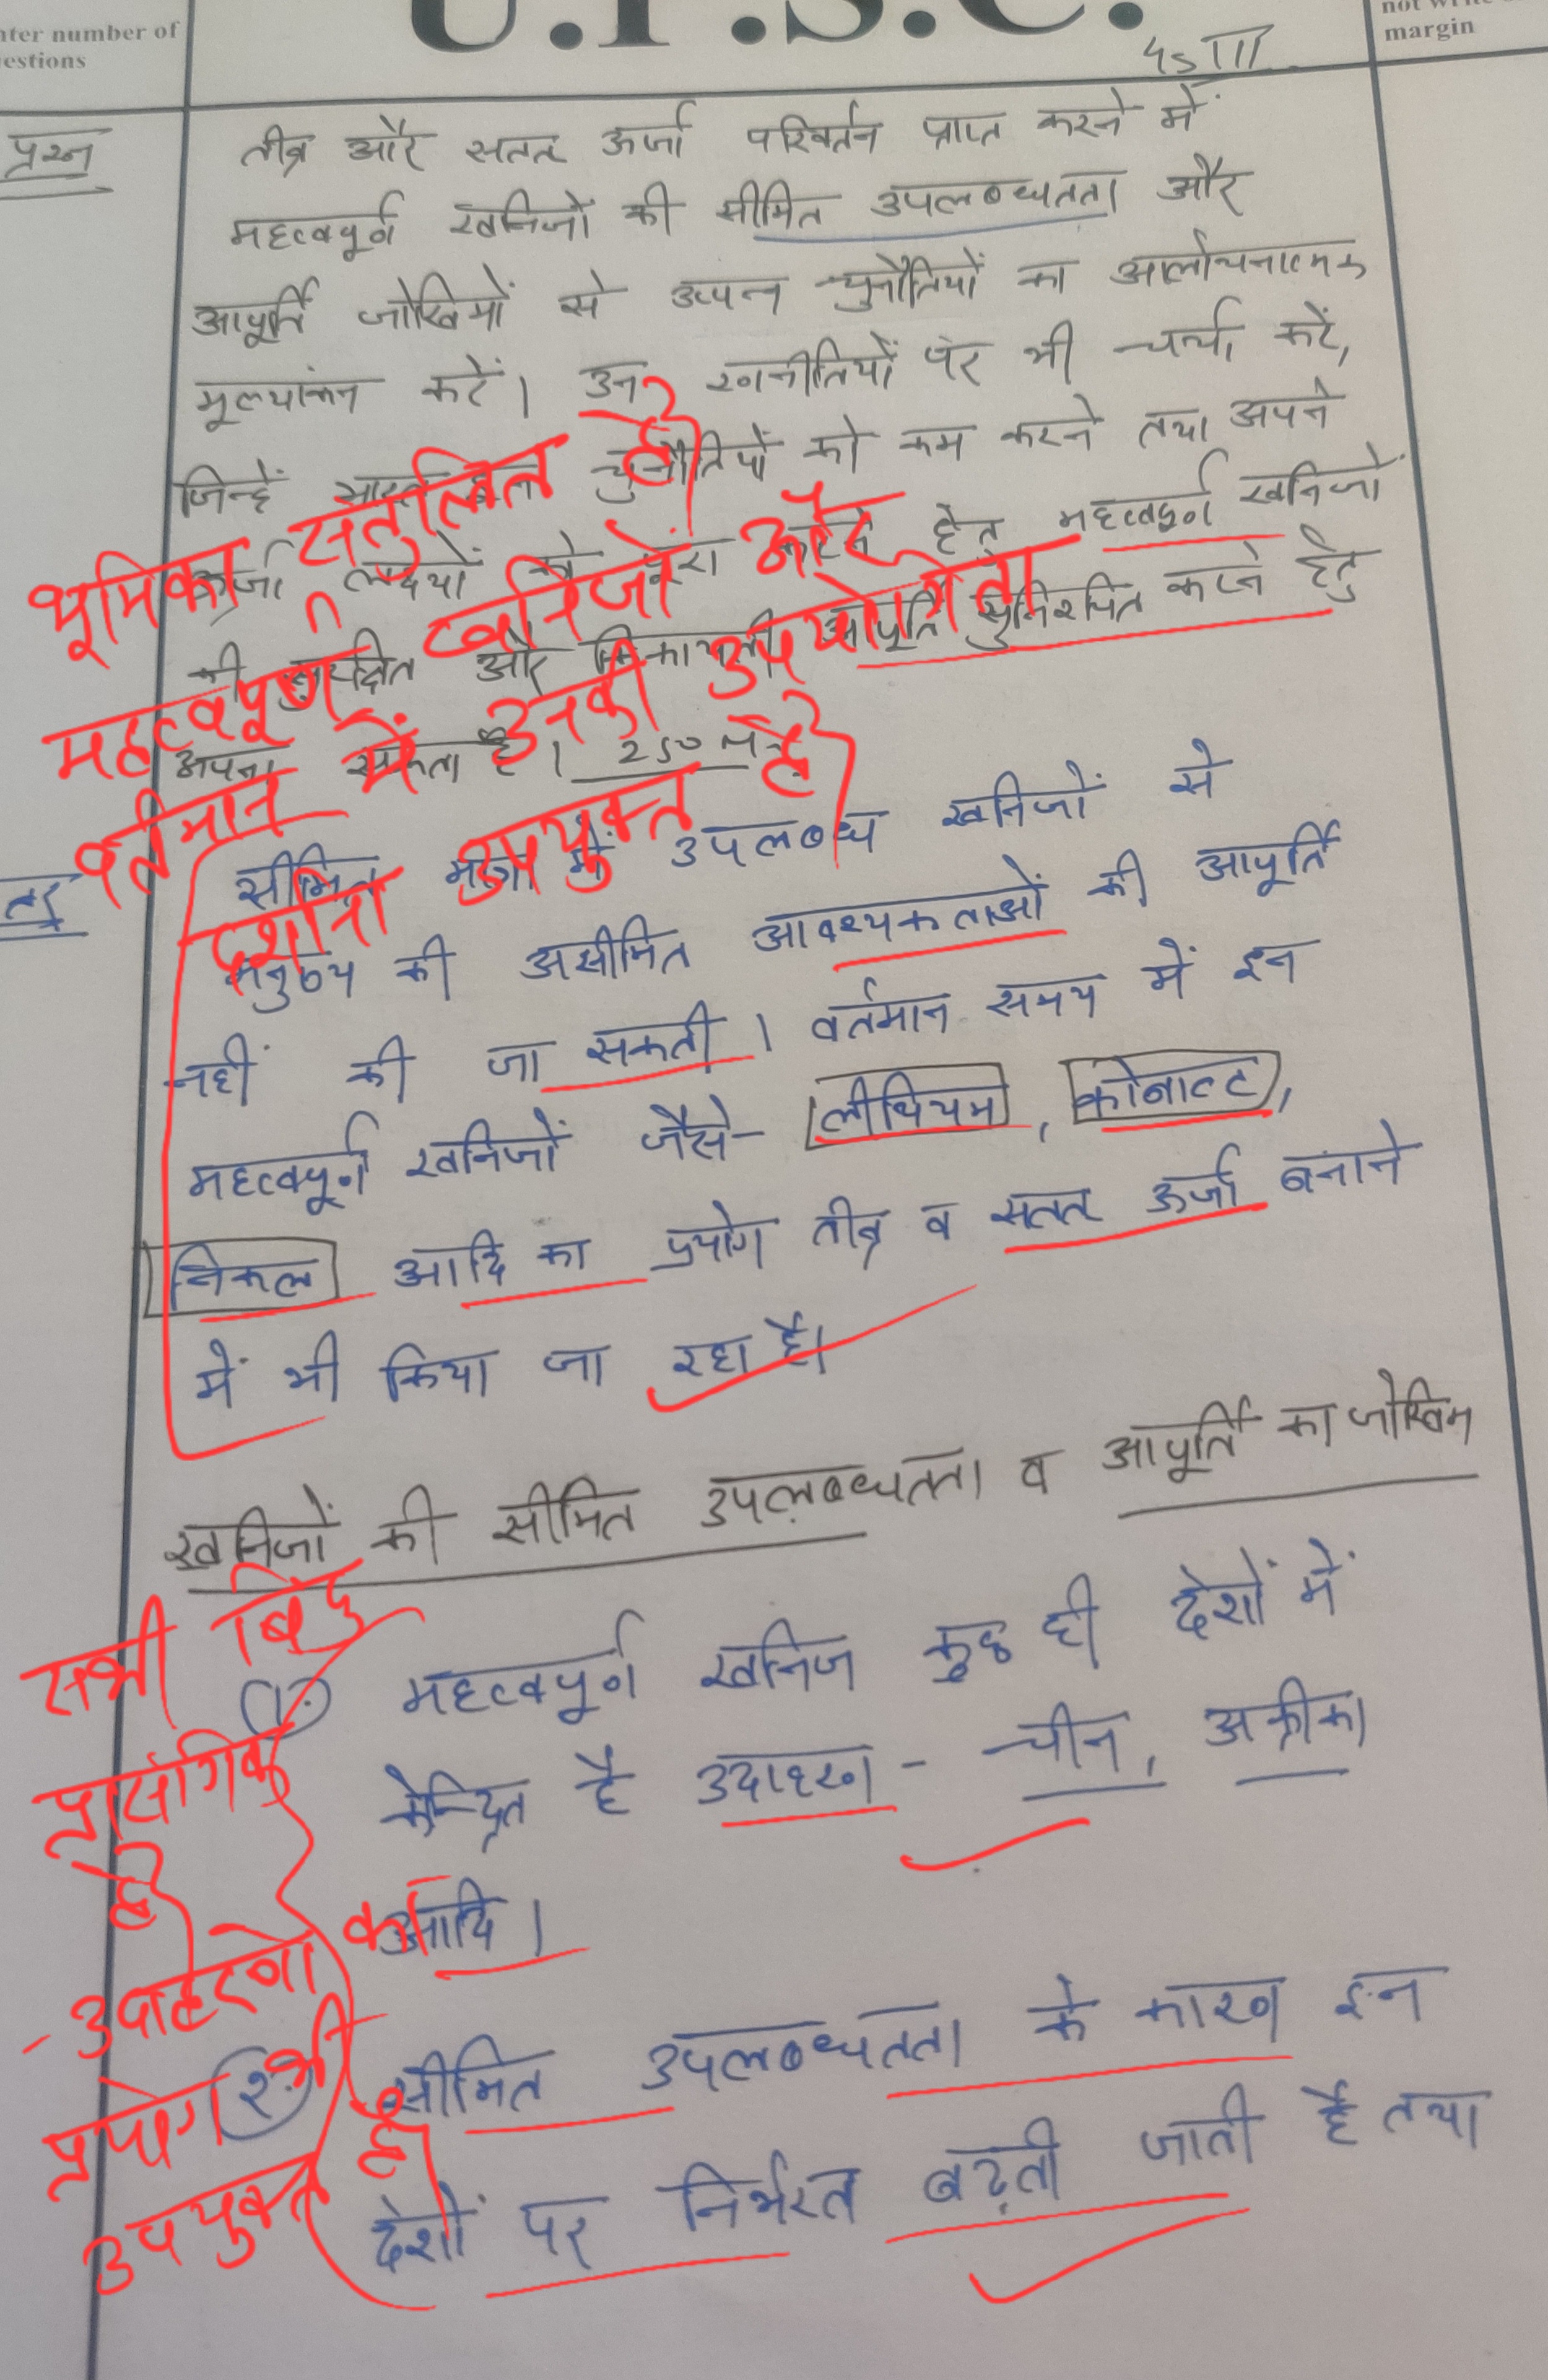 nter number of
estions
U.P.S.C.
margin
GS III
प्रश्न
तीव्र और सतत ऊर्जा परिवर्तन प्राप्त करने में
महत्वपूर्ण खनिजों की सीमित उपलब्धतता और
आपूर्ति जोखिमों से उत्पन्न चुनौतियों का आलोचनात्मक
मूल्यांकन करें। उन रणनीतियों पर भी चर्चा करें,
जिन्हें भारत इन चुनौतियों को कम करने तथा अपने
ऊर्जा लक्ष्यों को पूरा करने हेतु महत्वपूर्ण खनिजों
की सुरक्षित और किफायती आपूर्ति सुनिश्चित करने हेतु
अपना सकता है। 250
भूमिका संतुलित है।
महत्वपूर्ण खनिजों और
वर्तमान में उनकी उपयोगिता
दर्शाना उपयुक्त है
सीमित मात्रा में उपलब्ध खनिजों से
मनुष्य की असीमित आवश्यकताओं की आपूर्ति
नहीं की जा सकती। वर्तमान समय में इन
महत्वपूर्ण खनिजों जैसे- लीथियम, कोबाल्ट,
निकल आदि का प्रयोग तीव्र व सतत ऊर्जा बनाने
में भी किया जा रहा है।
खनिजों की सीमित उपलब्धतता व आपूर्ति का जोखिम
सभी बिंदु
प्रासंगिक
है
1. महत्वपूर्ण खनिज कुछ ही देशों में
केन्द्रित है उदाहरण - चीन, अफ्रीका
आदि।
- उदाहरणों का
प्रयोग भी
उपयुक्त है।
2. सीमित उपलब्धतता के कारण इन
देशों पर निर्भरत बढ़ती जाती है तथा